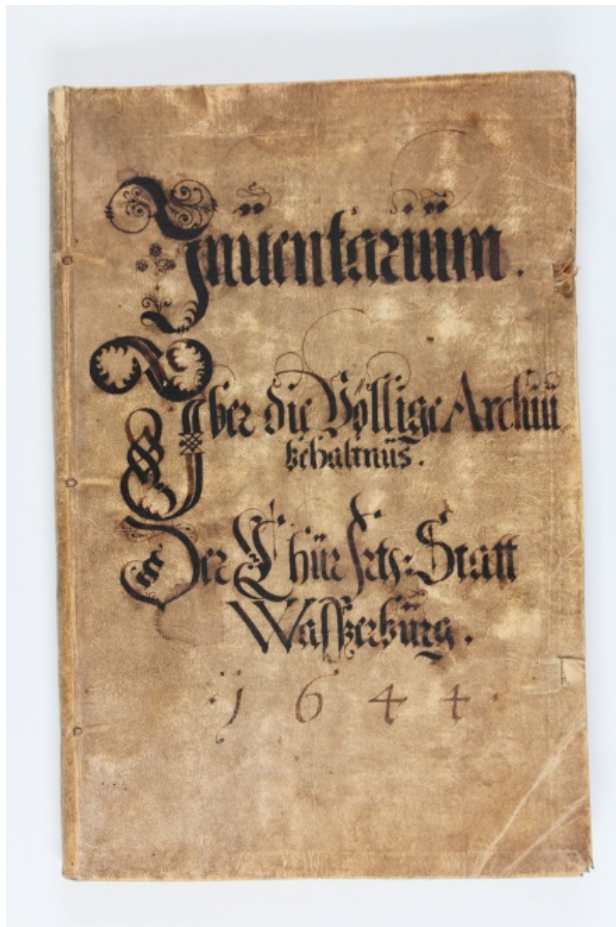 Inüentariüm.
Über die Völlige Archiü
behaltnüs.
Der Chür frtz: Statt
Wasserbürg.
1644.